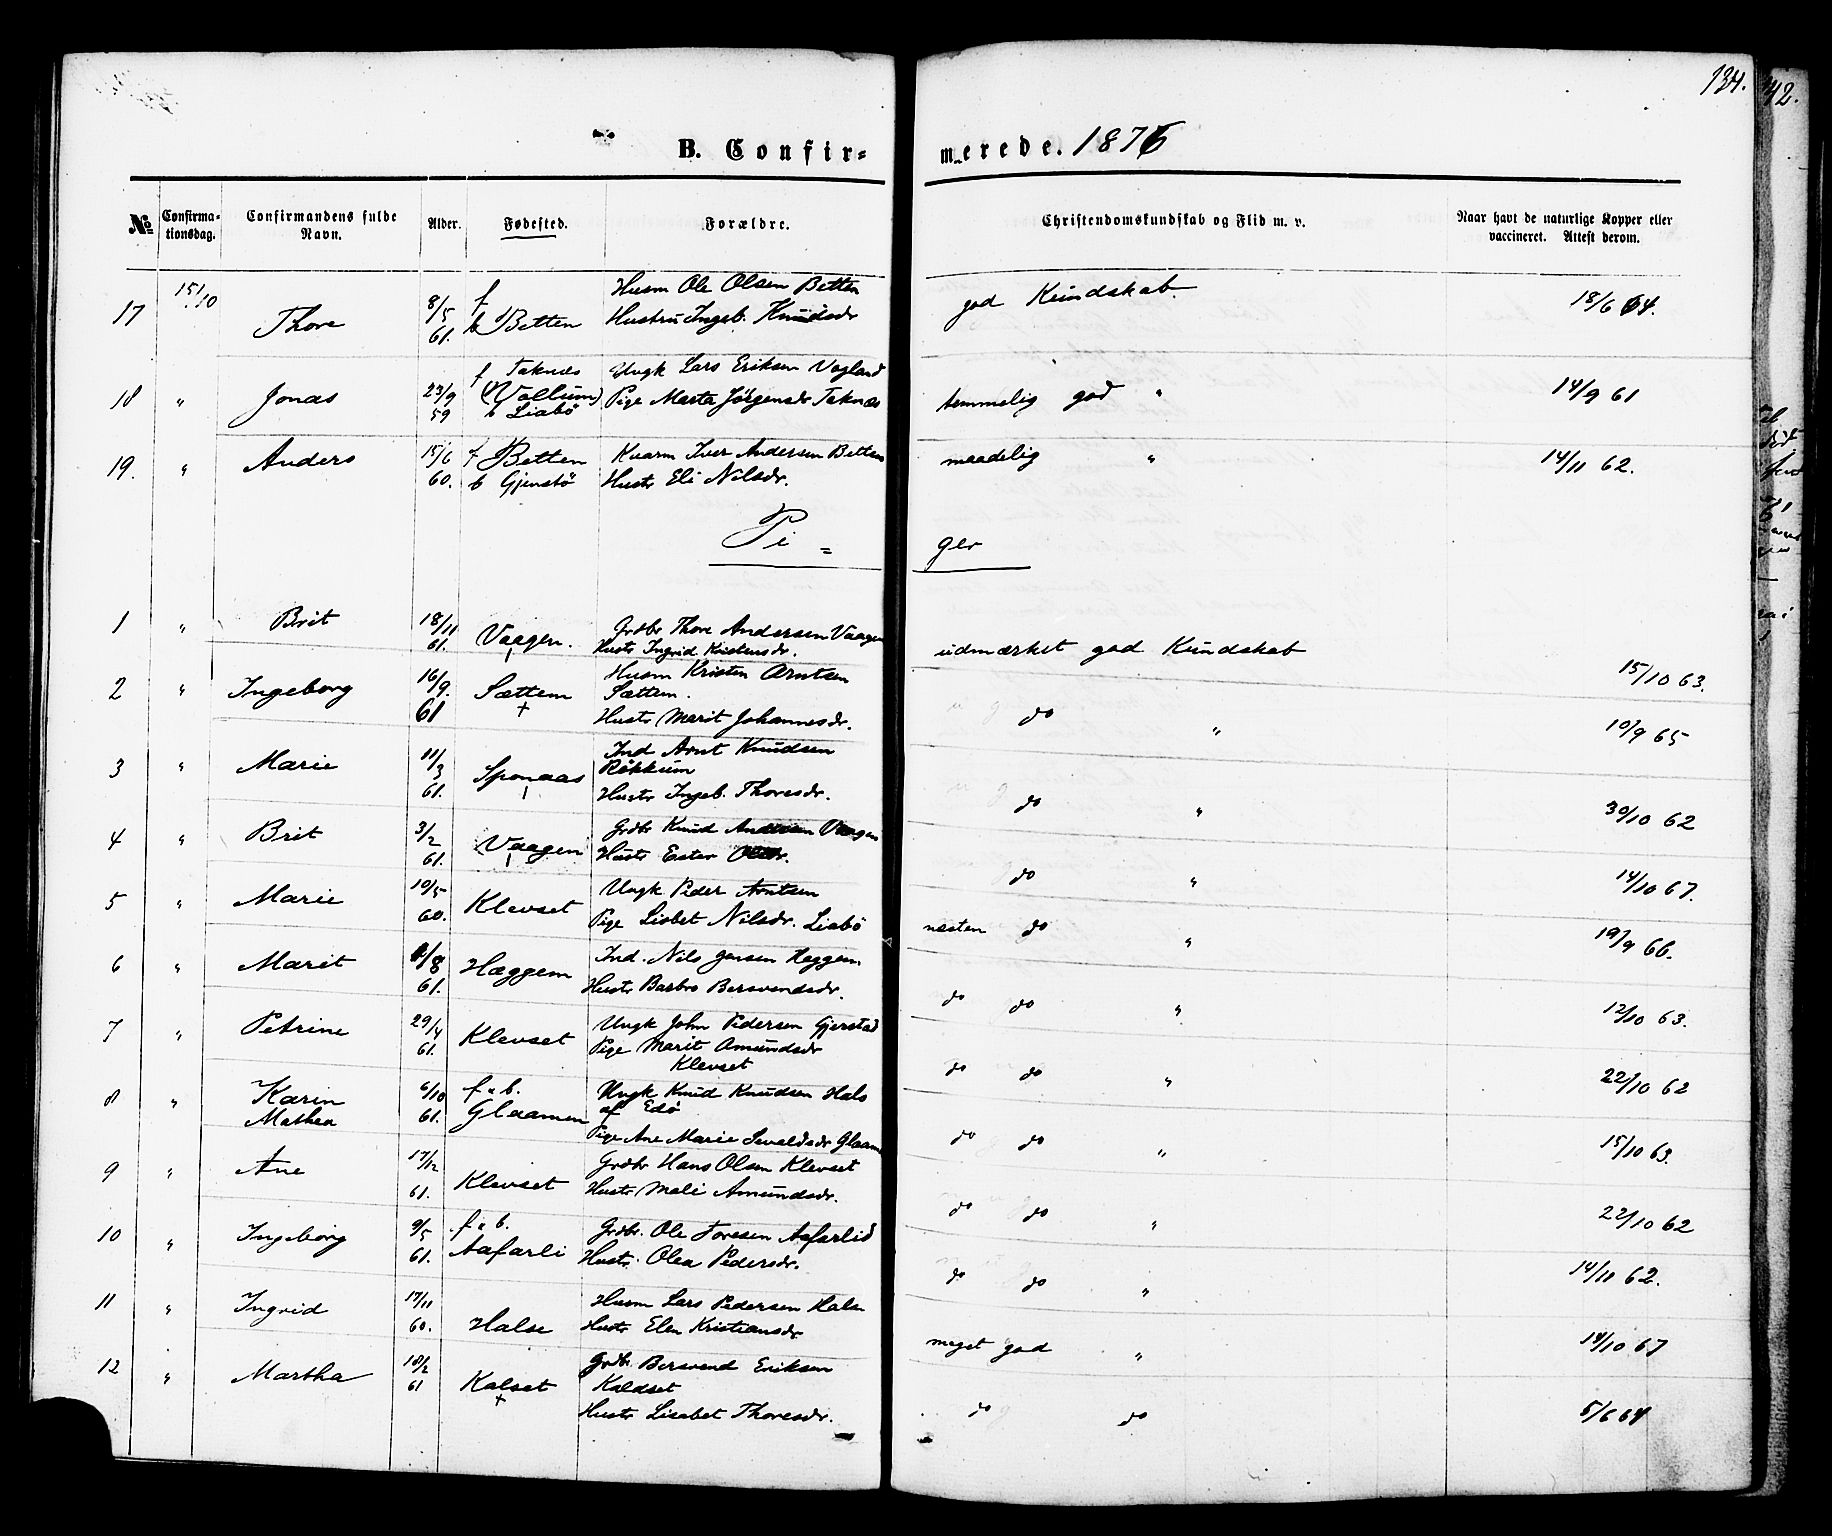 134.
42.
B. Confir- merede. 1876
No Confirmationsdag. Confirmandens fulde Navn. Alder. Fødested. Forældre. Christendomskundskab og Flid m. v. Naar havt de naturlige Kopper eller vaccineret. Attest derom.
17 15/10 Thore 8/5 61. f b Betten Husm Ole Olsen Betten god Kundskab. 18/6 64.
Hustru Ingeb. Knudsdr
18 " Jonas 23/9 59 f Taknes (Vollum) b Liabö Ungk Lars Eriksen Vagland temmelig god " 14/9 61
Pige Marta Jörgensdr Taknæs
19. " Anders 15/6 60. f Betten b Gjenstö Kvarm Iver Andersen Betten maadelig " 14/11 62.
Hustr Eli Nilsdr.
Pi = ger
1 " Brit 18/11 61. Vaagen. Grdbr Thore Andersen Vaagen udmærket god Kundskab 15/10 63.
Hustr Ingrid Kristensdr.
2 " Ingeborg 16/9. 61 Sættem + Husm Kristen Arntsen Sættem. do " 10/9 65
Hustr Marit Johannesdr.
3 " Marie 11/3 61. Sponaas Ind Arnt Knudsen Rökkum do " 30/10 62
Hustr Ingeb. Thoresdr.
4 " Brit 3/2 61. Vaagen Grdbr Knud Andersen Vaagen do " 14/10 67.
Hustr Ester
5 " Marie 10/5 60. Klevset Ungk Peder Arntsen næsten do " 19/9 66.
Pige Lisbet Nilsdr. Liabö
6 " Marit 1/8 61. Hæggem Ind. Nils Jensen Heggem do do " 12/10 63.
Hustr Barbro Bersvendsdr.
7 " Petrine 29/4 61. Klevset Ungk John Pedersen Gjerstad do do " 22/10 62
Pige Marit Amundsdr
Klevset
8 " Karin Mathea 6/10 61. f. b. Glaamen Ungk Knud Knudsen Hals af Edö do do " 15/10 63.
Pige Ane Marie Sevaldsdr Glaam
9 " Ane 17/12 61. Klevset Grdbr Hans Olsen Klevset do do " 22/10 62
Hustr Mali Amundsdr.
10 " Ingeborg 9/5 61. f. b. Aafarli Grdbr. Ole Toresen Aafarlid do do " 14/11 62.
Hustr. Olea Pedersdr.
11 " Ingrid 17/11 60. Halse Husm Lars Pedersen Halse meget god " 14/10 67
Hustr Elen Kristiansdr
12 " Martha 18/2 61 Kalset + Grdbr. Bersvend Eriksen Kaldset do do 5/6 64
Hustr Lisabet Thoresdr.